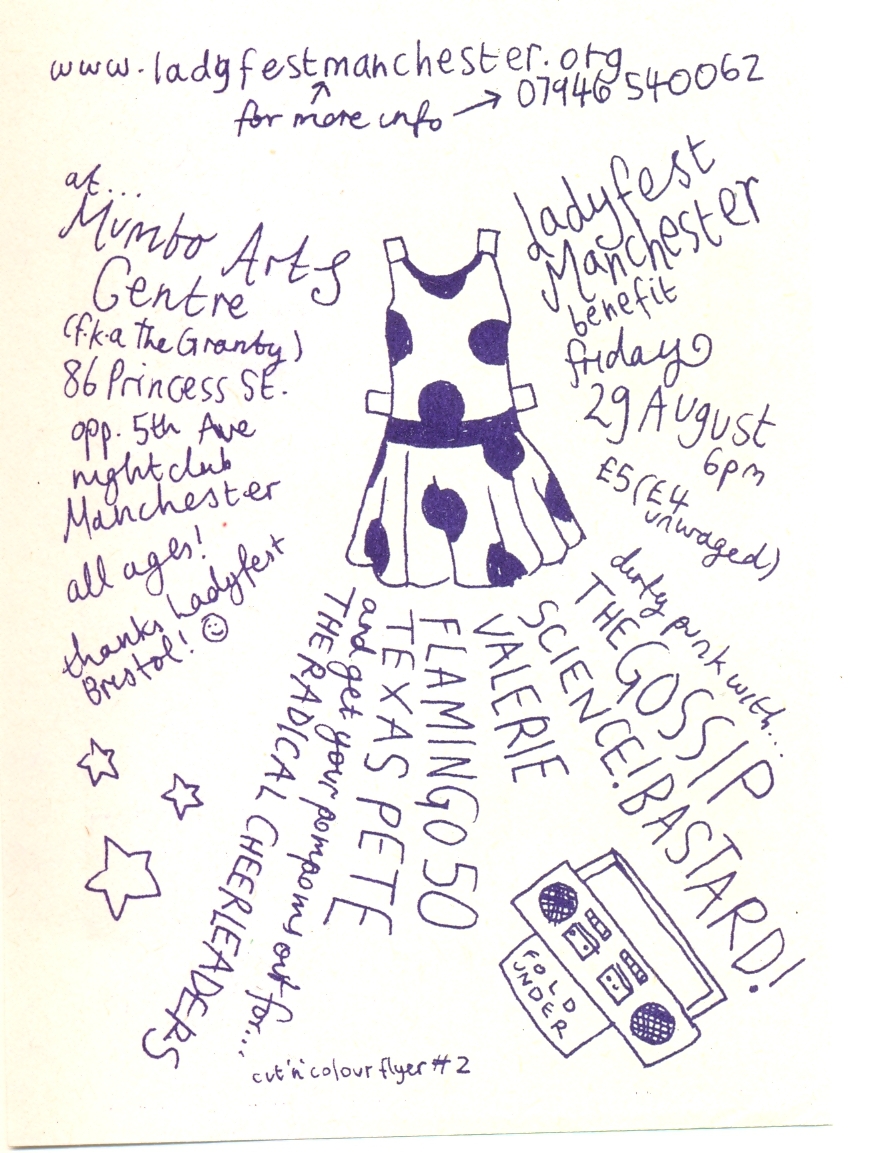 www.ladyfestmanchester.org
for more info → 07946 540062
at...
Mumbo Arts
Centre
(f.k.a The Granby)
86 Princess St.
opp. 5th Ave
nightclub
Manchester
all ages!
thanks Ladyfest
Bristol! ☺
Ladyfest
Manchester
benefit
friday
29 August
6pm
£5 (£4
unwaged)
dirty punk with...
THE GOSSIP
SCIENCE! BASTARD!
VALERIE
FLAMINGO 50
TEXAS PETE
and get your pompoms out for...
THE RADICAL CHEERLEADERS
FOLD
UNDER
cut'n'colour flyer #2